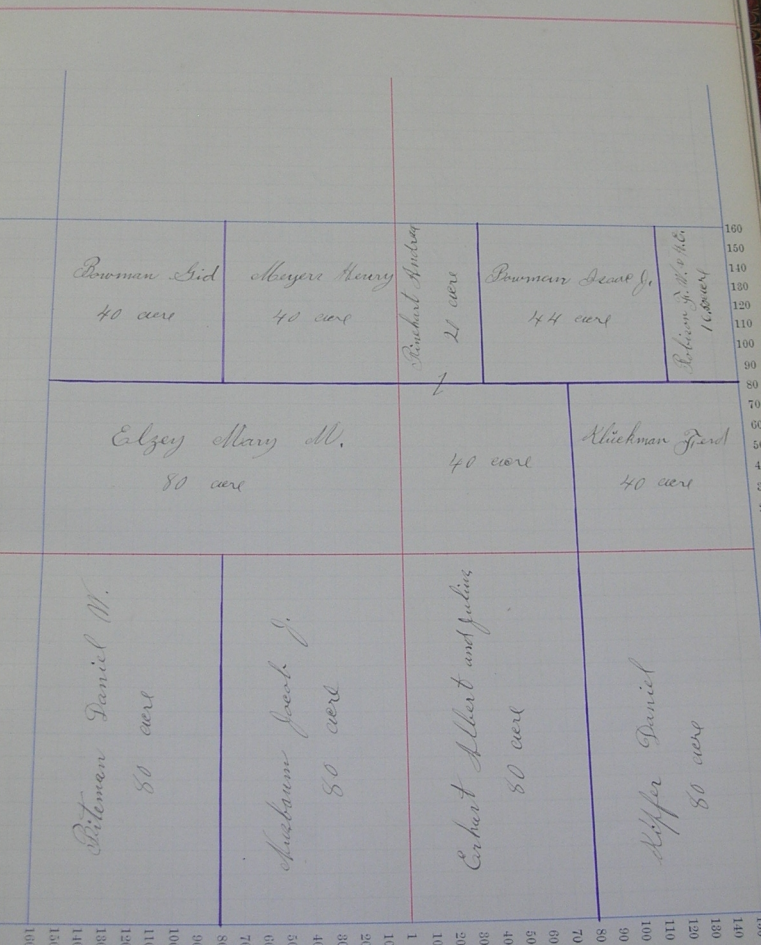 Bowman Gid
40 acre
Meyers Henry
40 acre
Rinehart Andrew
21 acre
Bowman Isaac J.
44 acre
Robison F. W. &
160
150
140
130
120
110
100
90
80
70
Elzey Mary M.
80 acre
40 acre
Klüekman Ferd
40 acre
Biteman Daniel W.
80 acre
Nusbaum Jacob J.
80 acre
Erhart Albert and Julius
80 acre
Kipfer Daniel
80 acre
160 150 140 130 120 110 100 90 80 70 60 50 40 30 20 10 1 10 20 30 40 50 60 70 80 90 100 110 120 130 140